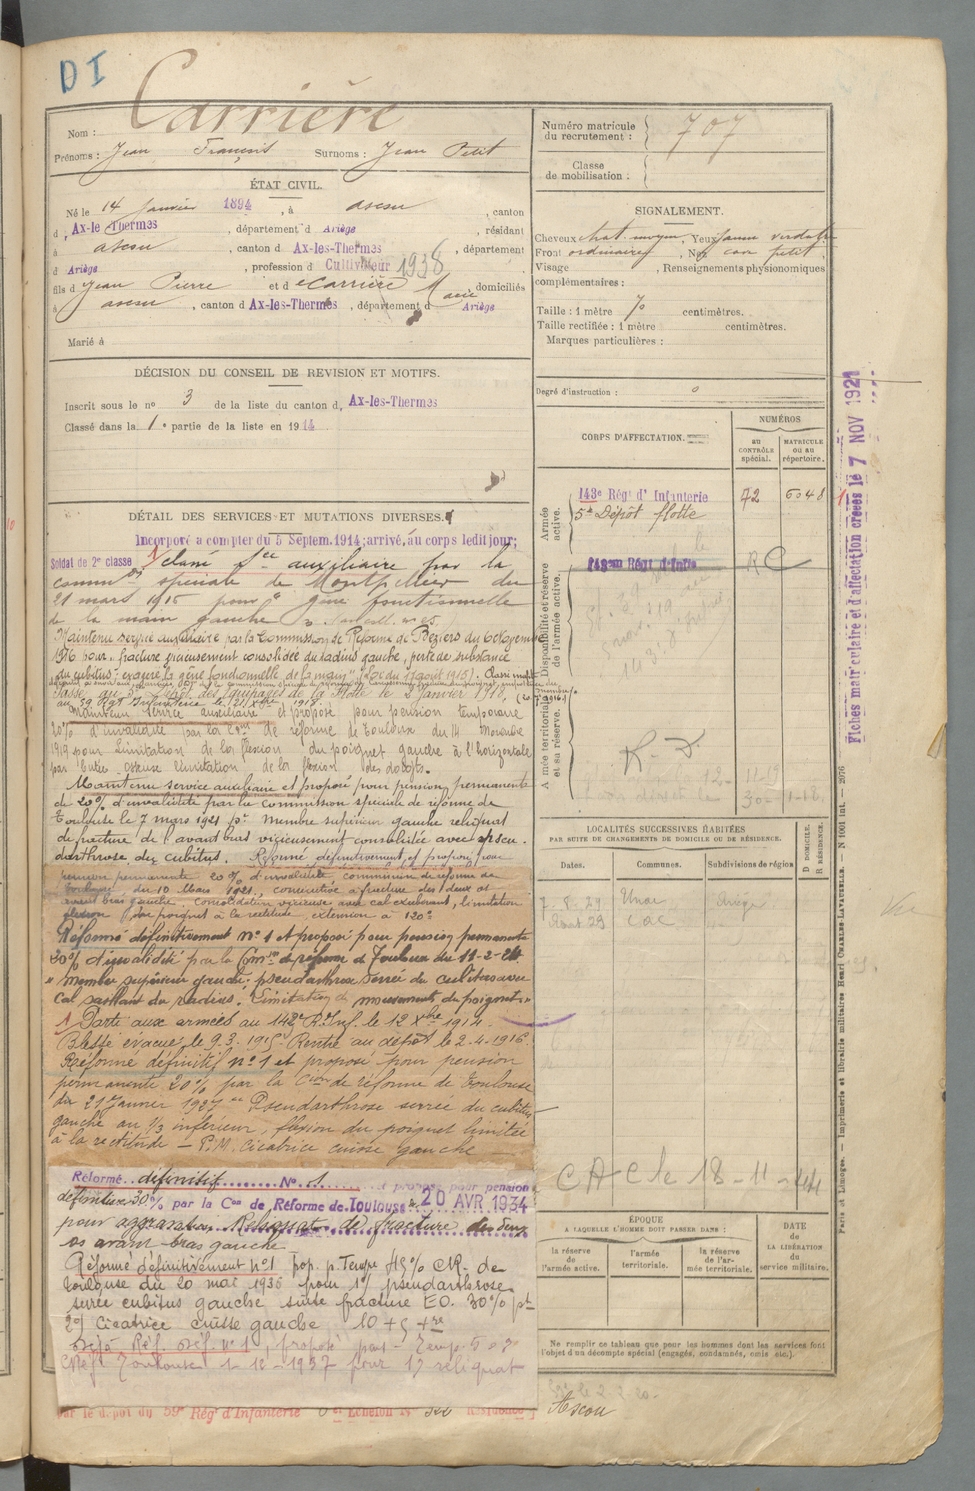 D I
Carrière
Nom :
Prénoms : Jean François Surnoms : Jean Petit
ÉTAT CIVIL.
Né le 14 Janvier 1894, à ascou, canton
d Ax-les Thermes, département d Ariège, résidant
à ascou, canton d Ax-les-Thermes, département
d Ariège, profession d Cultivateur 1938
fils d Jean Pierre et d Carrière Marie domiciliés
à ascou, canton d Ax-les-Thermes, département d Ariège
Marié à
DÉCISION DU CONSEIL DE REVISION ET MOTIFS.
Inscrit sous le no 3 de la liste du canton d, Ax-les-Thermes
Classé dans la 1e partie de la liste en 1914
DÉTAIL DES SERVICES ET MUTATIONS DIVERSES.
Incorporé à compter du 5 Septem. 1914; arrivé, au corps ledit jour;
Soldat de 2e classe classé sce auxiliaire par la
common spéciale de Montpellier du
21 mars 1916 pour " gêne fonctionnelle
de la main gauche
Maintenu service auxiliaire par la Commission de Réforme de Béziers du 6
1916 pour fracture vicieusement consolidée du radius gauche, perte de substance
du cubitus; exagère la gêne fonctionnelle de la main" (Loi du 17 août 1915).
Passé au 5e Dépôt des Equipages de la Flotte le 2 Janvier 1918.
au 59 Régt Infanterie le 1918.
Maintenu service auxiliaire et proposé pour pension temporaire
20% d'invalidité par la Com de réforme de Toulouse du 14 Novembre
1919 pour limitation de la flexion du poignet gauche à l'horizontale
limitation de la flexion des doigts.
Maintenu service auxiliaire et proposé pour pension permanente
de 20% d'invalidité par la Commission spéciale de réforme de
Toulouse le 7 mars 1921 pr. Membre supérieur gauche reliquat
de fracture de l'avant bras vicieusement consolidée avec pseu-
darthrose du cubitus. Réformé définitivement et proposé pour
pension permanente 20% d'invalidité commission de réforme de
Toulouse du 10 Mars 1921, consécutive à fracture des deux os
avant bras gauche. consolidation vicieuse avec cal exubérant, limitation
flexion du poignet à la rectitude, extension à 120°
Réformé définitivement no 1 et proposé pour pension permanente
20% d'invalidité par la Comon de réforme de Toulouse du 11-2-24
" membre supérieur gauche: pseudarthrose serrée du cubitus avec
cal saillant du radius. Limitation de mouvements du poignet "
Parti aux armées au 142e R. Inf. le 12 Xbre 1914.
Blessé évacué le 9.3.1915 Rentré au dépôt le 2.4.1916.
Réformé définitif no 1 et proposé pour pension
permanente 20% par la Cion de réforme de Toulouse
du 21 Janvier 1927 Pseudarthrose serrée du cubitus
gauche au 1/3 inférieur, flexion du poignet limitée
à la rectitude — P.M. Cicatrice cuisse gauche —
Réformé définitif No 1 et proposé pour pension
définitive 30% par la Con de Réforme de Toulouse 20 AVR 1934
pour aggravation Reliquat de fracture des deux
os avant-bras gauche
Réformé définitivement no 1 prop. p. Temp 45% CR. de
Toulouse du 20 mai 1936 pour 1°) pseudarthrose
serrée cubitus gauche suite fracture EO. 30% pt
2°) Cicatrice cuisse gauche 10 + 5
Déjà Réf. Déf. no 1, proposé pour
Toulouse 1-12-1937 pour 1°) reliquat
par le dépôt du 59e Régt d'Infanterie
Ascou
Numéro matricule du recrutement : 707
Classe de mobilisation :
SIGNALEMENT.
Cheveux chat. moyen, Yeux jaune verdatre
Front ordinaire, Nez petit
Visage , Renseignements physionomiques
complémentaires :
Taille : 1 mètre 70 centimètres.
Taille rectifiée : 1 mètre centimètres.
Marques particulières :
Degré d'instruction : 0
CORPS D'AFFECTATION.
NUMÉROS
au contrôle spécial.
MATRICULE ou au répertoire.
Armée active.
143e Régt d' Infanterie 72 6048
5e Dépôt flotte
Disponibilité et réserve de l'armée active.
R C
Armée territoriale et sa réserve.
R. D
LOCALITÉS SUCCESSIVES HABITÉES
PAR SUITE DE CHANGEMENTS DE DOMICILE OU DE RÉSIDENCE.
Dates. Communes. Subdivisions de région
D DOMICILE. R RÉSIDENCE.
7-8-29 Unac Ariège
CAC le 18-11-44
ÉPOQUE
A LAQUELLE L'HOMME DOIT PASSER DANS :
la réserve de l'armée active.
l'armée territoriale.
la réserve de l'armée territoriale.
DATE de LA LIBÉRATION du service militaire.
Ne remplir ce tableau que pour les hommes dont les services font
l'objet d'un décompte spécial (engagés, condamnés, omis etc.).
Fiches matriculaire et d'affectation créées le 7 NOV 1921
Paris et Limoges. — Imprimerie et librairie militaires Henri CHARLES-LAVAUZELLE. — N° 601 int. — 2076
Vu